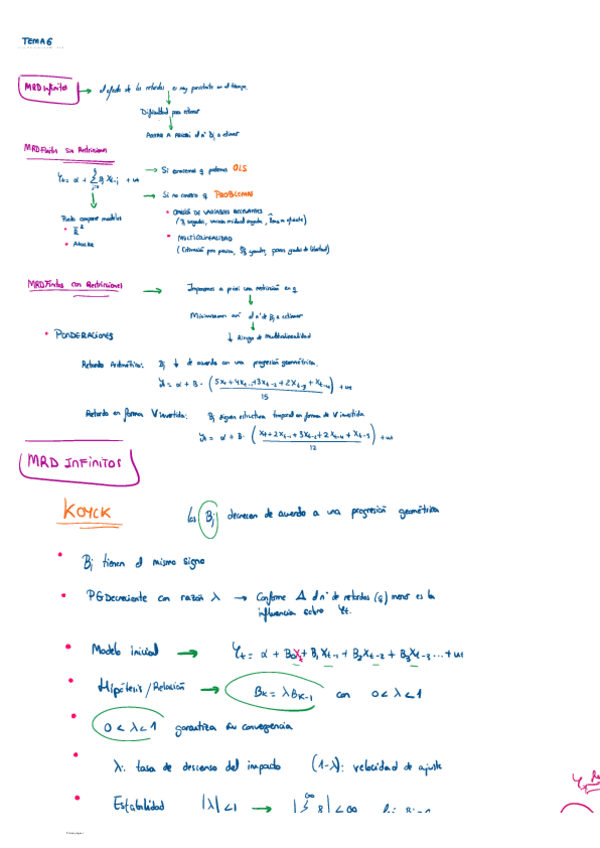 TEMA 6
MRD Infinitos → el efecto de los retardos es muy persistente en el tiempo.
Dificultad para estimar
Acotar a priori el nº Bj a estimar
MRD Finitos Sin Restricciones
Yt = α + Σ Bj Xt-j + ut → Si conocemos q podemos OLS
→ Si no conozco q PROBLEMAS
Puedo comparar modelos
• R²
• Akaike
• OMISIÓN DE VARIABLES RELEVANTES
• MULTICOLINEALIDAD
MRD Finitos con Restricciones → Imponemos a priori una restricción en q
Minimizamos así el nº de Bj a estimar
↓ Riesgo de Multicolinealidad
• PONDERACIONES
Retardo Aritmético: Bj ↓ de acuerdo con una progresión geométrica.
Yt = α + B · (5Xt + 4Xt-1 + 3Xt-2 + 2Xt-3 + Xt-4 / 15) + ut
Retardo en forma V invertida: Bj siguen estructura temporal en forma de V invertida
Yt = α + B · (Xt + 2Xt-1 + 3Xt-2 + 2Xt-4 + Xt-5 / 12) + ut
MRD INFINITOS
KOYCK
los Bj decrecen de acuerdo a una progresión geométrica
• Bj tienen el mismo signo
• PG Decreciente con razón λ → Conforme Δ el nº de retardos (q) menor es la
influencia sobre Yt.
• Modelo inicial → Yt = α + B0Xt + B1Xt-1 + B2Xt-2 + B3Xt-3 ... + ut
• Hipótesis / Relación → BK = λBK-1 con 0 < λ < 1
• 0 < λ < 1 garantiza su convergencia
• λ: tasa de descenso del impacto (1-λ): velocidad de ajuste
• Estabilidad |λ| < 1 →